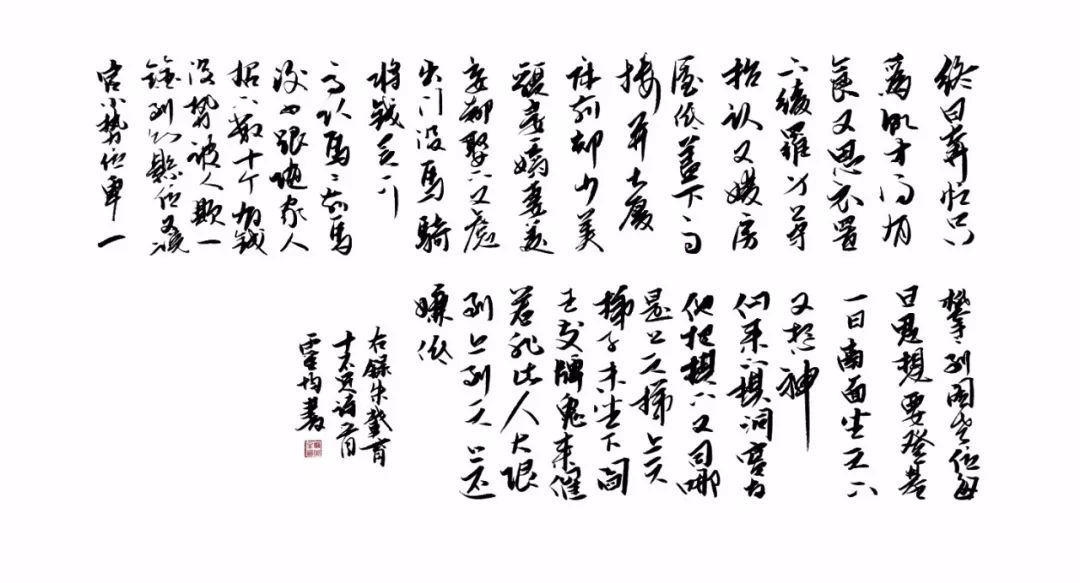 終日奔忙只
為飢才得有
食又思衣置
下綾羅身上穿
抬头又嫌房
屋低蓋下高
楼并大廈
床前却少美
貌妻嬌妻美
妾都娶下又慮
出门没馬骑
将钱买下
高头馬馬前馬
后少跟随家人
招下数十个有钱
没势被人欺一
銓銓到知縣位又説
官小势位卑一
攀攀到阁老位每
日思想要登基
一日南面坐天下
又想神
仙来下棋洞宾与
他把棋下又问哪
是上天梯上天
梯子未坐下阎
王发牌鬼来催
若非此人大限
到上到天上还
嫌低
右録朱載堉
十不足诗一首
霊均書